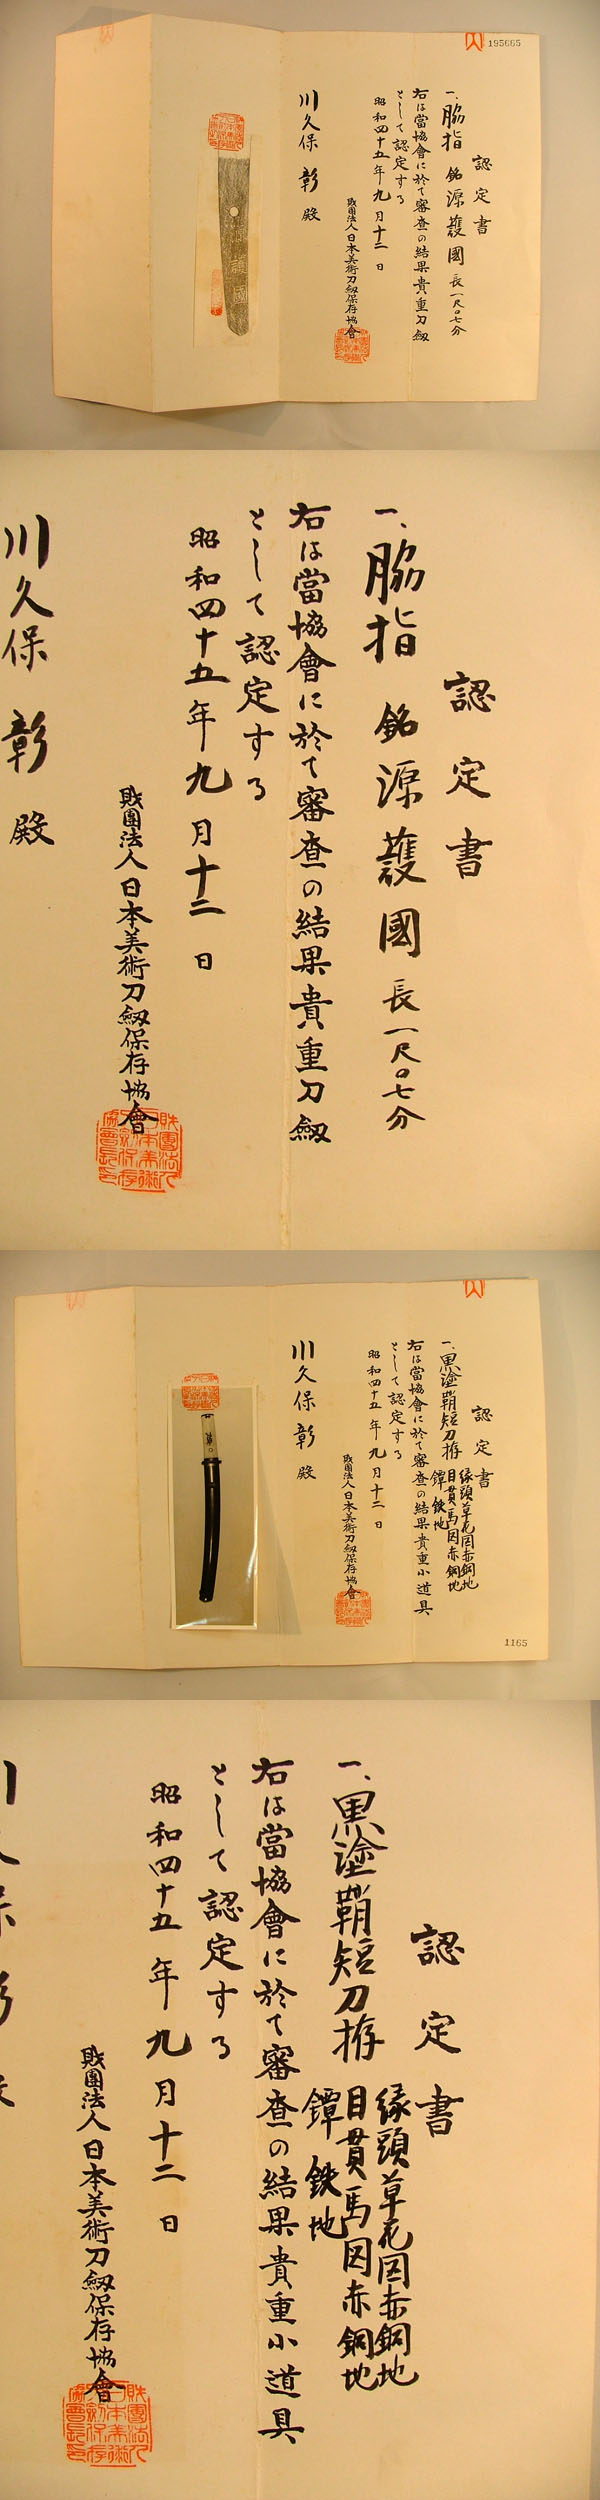 195665
認定書
一、脇指 銘 源護國 長一尺〇七分
右は當協會に於て審査の結果貴重刀劔
として認定する
昭和四十五年九月十二日
財團法人日本美術刀劔保存協會
川久保彰殿
認定書
一、脇指 銘 源護國 長一尺〇七分
右は當協會に於て審査の結果貴重刀劔
として認定する
昭和四十五年九月十二日
財團法人日本美術刀劔保存協會
川久保彰殿
認定書
一、黒塗鞘短刀拵
縁頭草花図赤銅地
目貫馬図赤銅地
鐔鉄地
右は當協會に於て審査の結果貴重小道具
として認定する
昭和四十五年九月十二日
財團法人日本美術刀劔保存協會
川久保彰殿
1165
認定書
一、黒塗鞘短刀拵
縁頭草花図赤銅地
目貫馬図赤銅地
鐔鉄地
右は當協會に於て審査の結果貴重小道具
として認定する
昭和四十五年九月十二日
財團法人日本美術刀劔保存協會